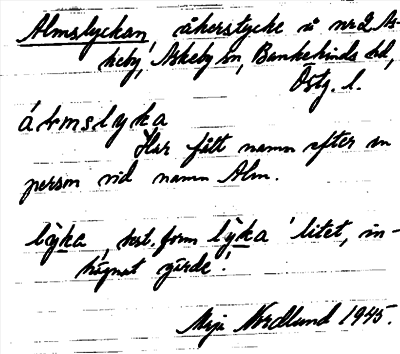 Almslyckan, åkerstycke å nr 2 As-
keby, Askeby sn, Bankekinds hd,
Östg. l.
álmslyka
Har fått namn efter en
person vid namn Alm.
lyka, best. form lyka 'litet, in-
hägnat gärde'.
Maja Nordlund 1945.